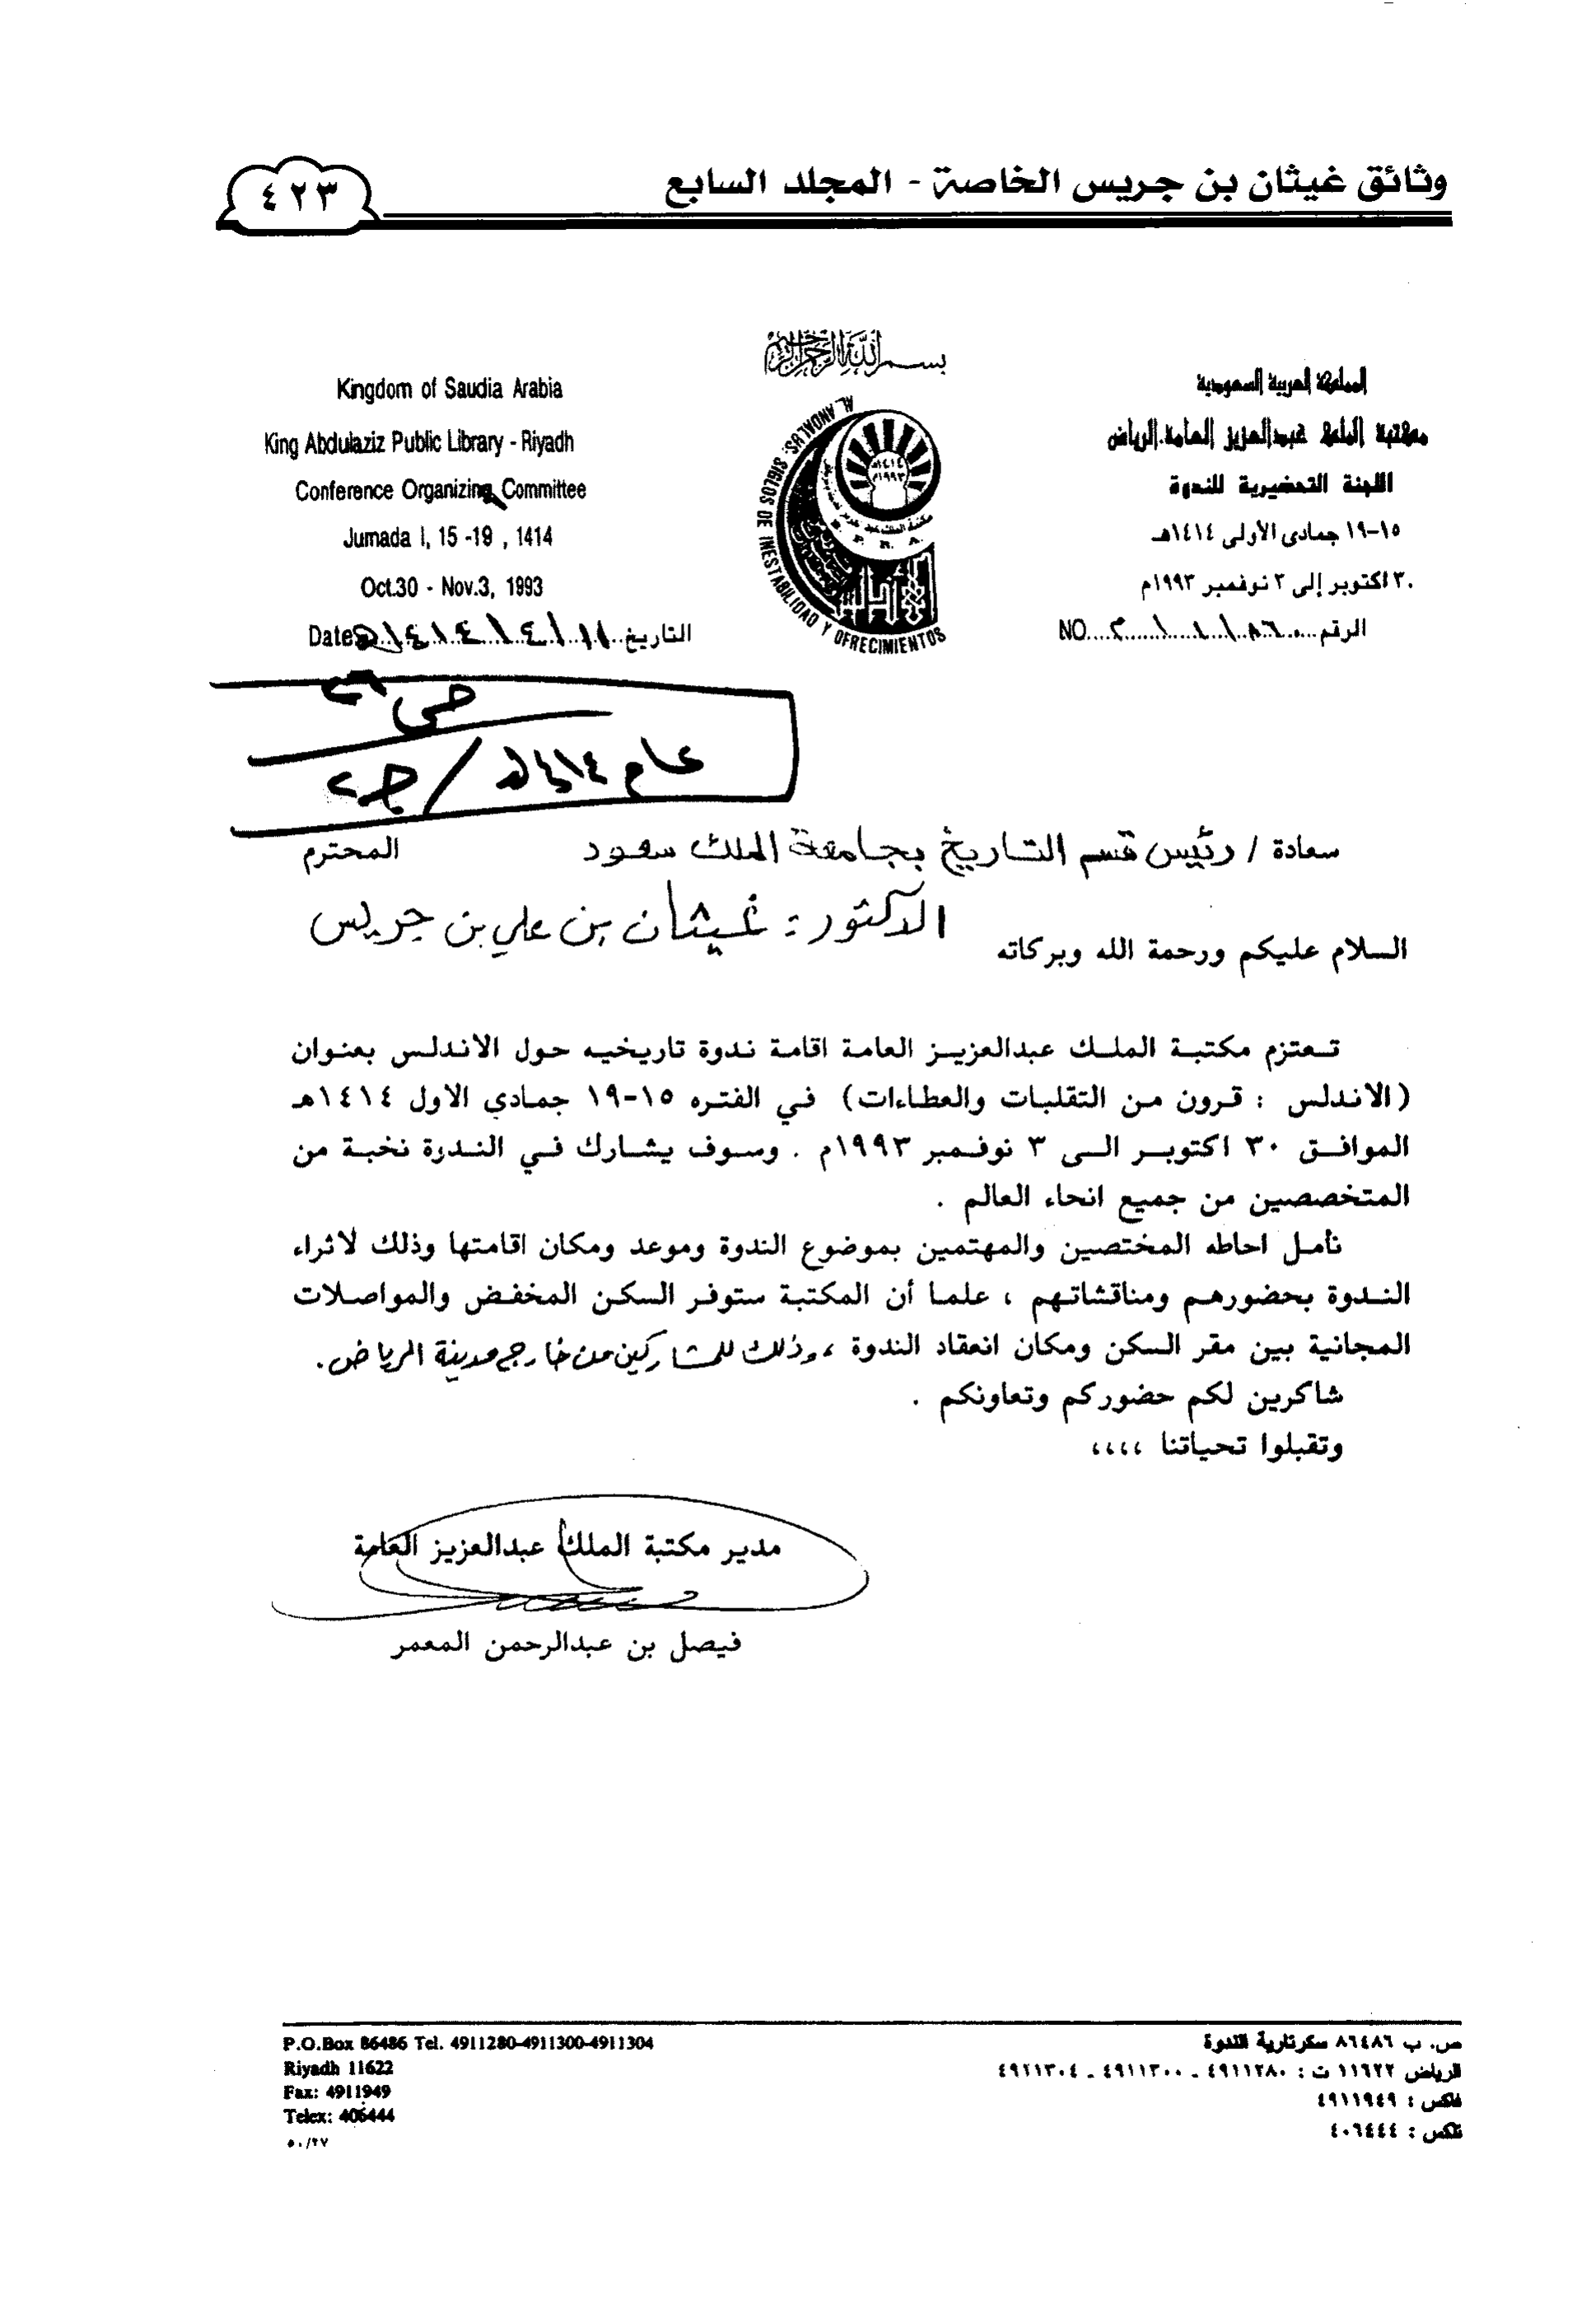 وثائق غيثان بن جريس الخاصة - المجلد السابع
٤٢٣
بسم الله الرحمن الرحيم
المملكة العربية السعودية
مكتبة الملك عبدالعزيز العامة.الرياض
اللجنة التحضيرية للندوة
١٥-١٩ جمادى الأولى ١٤١٤هـ
٣٠ اكتوبر إلى ٣ نوفمبر ١٩٩٣م
الرقم NO
Kingdom of Saudia Arabia
King Abdulaziz Public Library - Riyadh
Conference Organizing Committee
Jumada I, 15 -19 , 1414
Oct.30 - Nov.3, 1993
التاريخ ١١/٤/١٤١٤هـ Date
AL ANDALUS: SIGLOS DE INESTABILIDAD Y OFRECIMIENTOS
١٤١٤هـ
١٩٩٣م
عام ١٤١٤هـ / ج٢
سعادة / رئيس قسم التاريخ بجامعة الملك سعود المحترم
الدكتور : غيثان بن علي بن جريس
السلام عليكم ورحمة الله وبركاته
تعتزم مكتبة الملك عبدالعزيز العامة اقامة ندوة تاريخيه حول الاندلس بعنوان
(الاندلس : قرون من التقلبات والعطاءات) في الفتره ١٥-١٩ جمادي الاول ١٤١٤هـ
الموافق ٣٠ اكتوبر الى ٣ نوفمبر ١٩٩٣م . وسوف يشارك في الندوة نخبة من
المتخصصين من جميع انحاء العالم .
نأمل احاطه المختصين والمهتمين بموضوع الندوة وموعد ومكان اقامتها وذلك لاثراء
الندوة بحضورهم ومناقشاتهم ، علما أن المكتبة ستوفر السكن المخفض والمواصلات
المجانية بين مقر السكن ومكان انعقاد الندوة ، وذلك للمشاركين من خارج مدينة الرياض .
شاكرين لكم حضوركم وتعاونكم .
وتقبلوا تحياتنا ،،،،
مدير مكتبة الملك عبدالعزيز العامة
فيصل بن عبدالرحمن المعمر
ص. ب ٨٦٤٨٦ سكرتارية الندوة
الرياض ١١٦٢٢ ت : ٤٩١١٢٨٠ - ٤٩١١٣٠٠ - ٤٩١١٣٠٤
فاكس : ٤٩١١٩٤٩
تلكس : ٤٠٦٤٤٤
P.O.Box 86486 Tel. 4911280-4911300-4911304
Riyadh 11622
Fax: 4911949
Telex: 406444
٥٠/٢٧